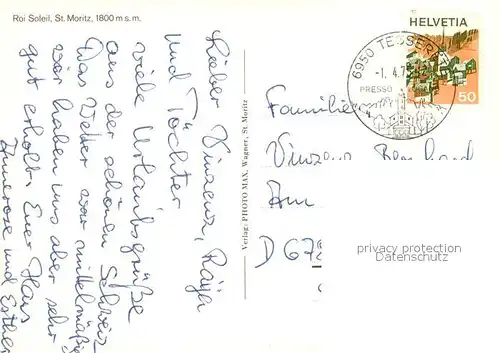 Roi Soleil, St. Moritz, 1800 m s. m.
Lieber Vinzenz, Raija
und Töchter
viele Urlaubsgrüße
aus der schönen Schweiz
Das Wetter war mittelmäßig
wir haben uns aber sehr
gut erholt. Euer Hans
Annerose und Esther
Verlag: PHOTO MAX, Wagner, St. Moritz
HELVETIA
50
6950 TESSERETE
-1. 4.7
PRESSO
Familie
Vinzenz
Am
D 67
privacy protection
Datenschutz